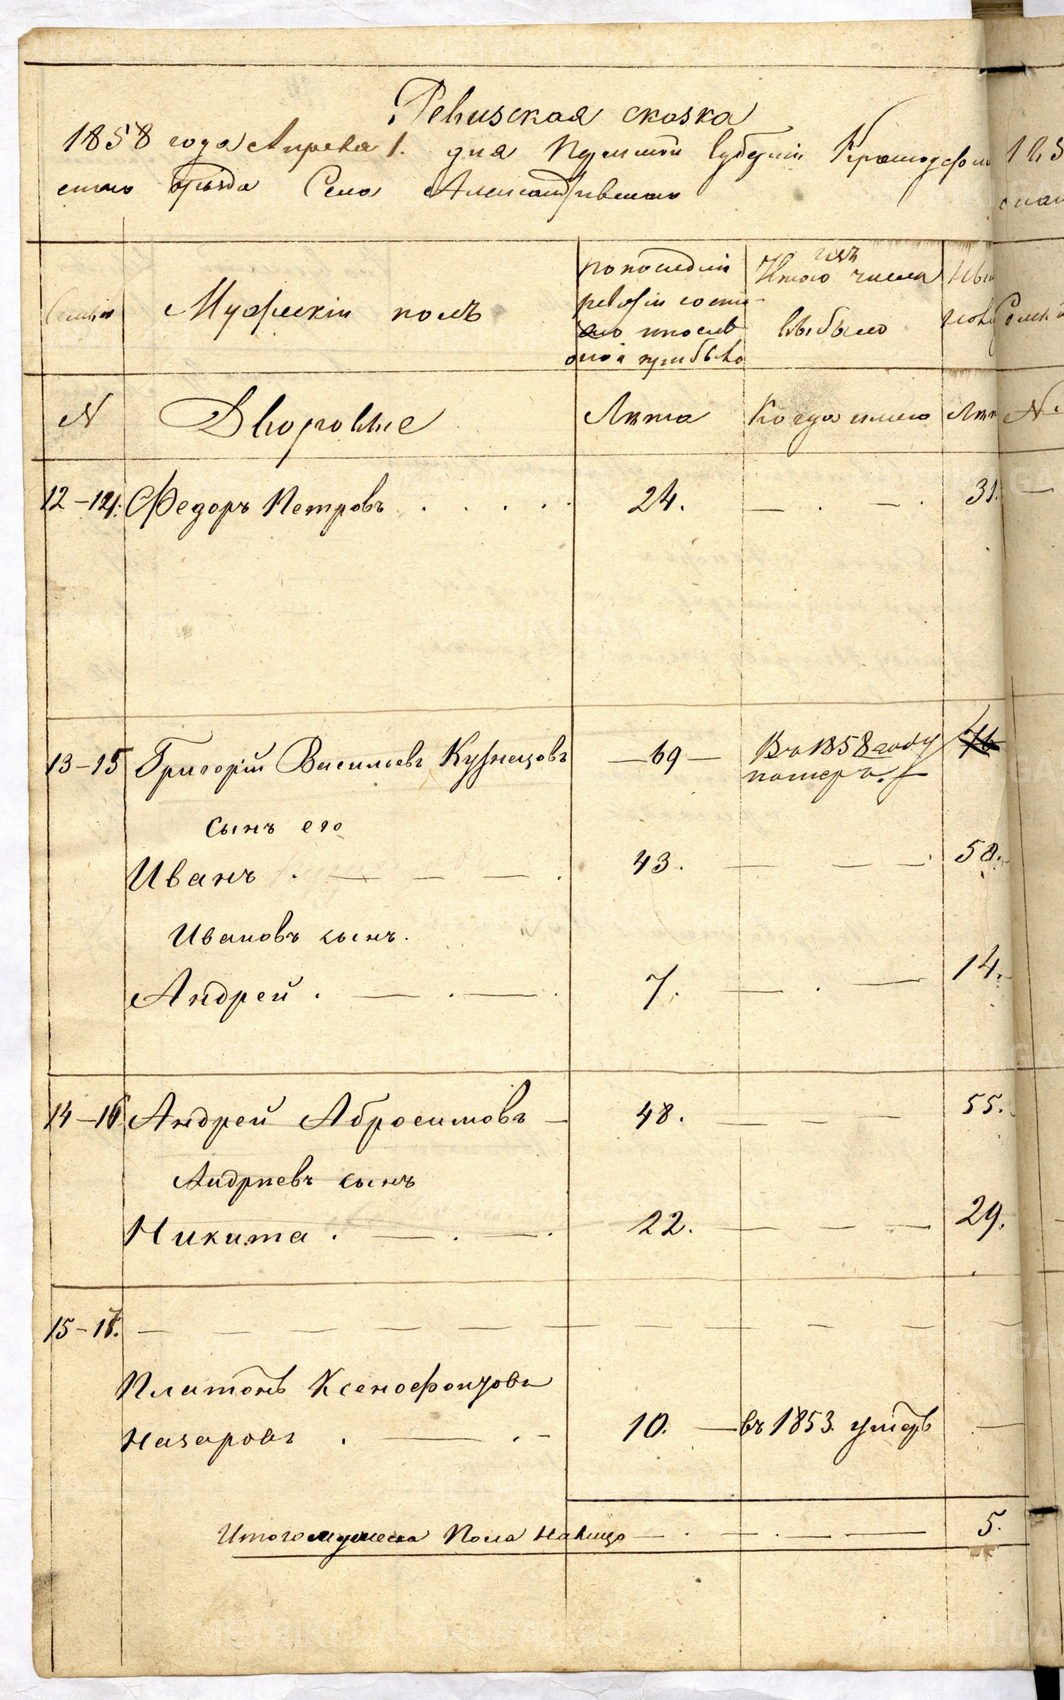 Ревизская сказка
1858 года Апреля 1. дня Пермской Губернiи Красноуфим
скаго Уѣзда Села Александровскаго
Семьи
Мужескiй полъ
по последней
ревизiи состо
яло и после
оной прибыло
Изъ того числа
выбыло
N
Дворовые
Лѣта
Когда имено
Лѣт
12-14. Федоръ Петровъ . . . . . 24. — . — . 31.
13-15 Григорiй Васильевъ Кузнецовъ —69— Въ 1858 году
померъ. 76
сынъ его
Иванъ . — — — . 43. — — — 50.
Ивановъ сынъ.
Андрей . — . — . 7. — . — 14.
14-16 Андрей Абросимовъ — 48. — — — 55.
Андреевъ сынъ
Никита . — . — . 22. — — — 29.
15-17. — — — — — — — — — — —
Платонъ Ксенофонтовъ
Назаровъ . — . - 10. — въ 1853. умеръ —
Итого мужеска Пола на лицо — . — . — — 5.